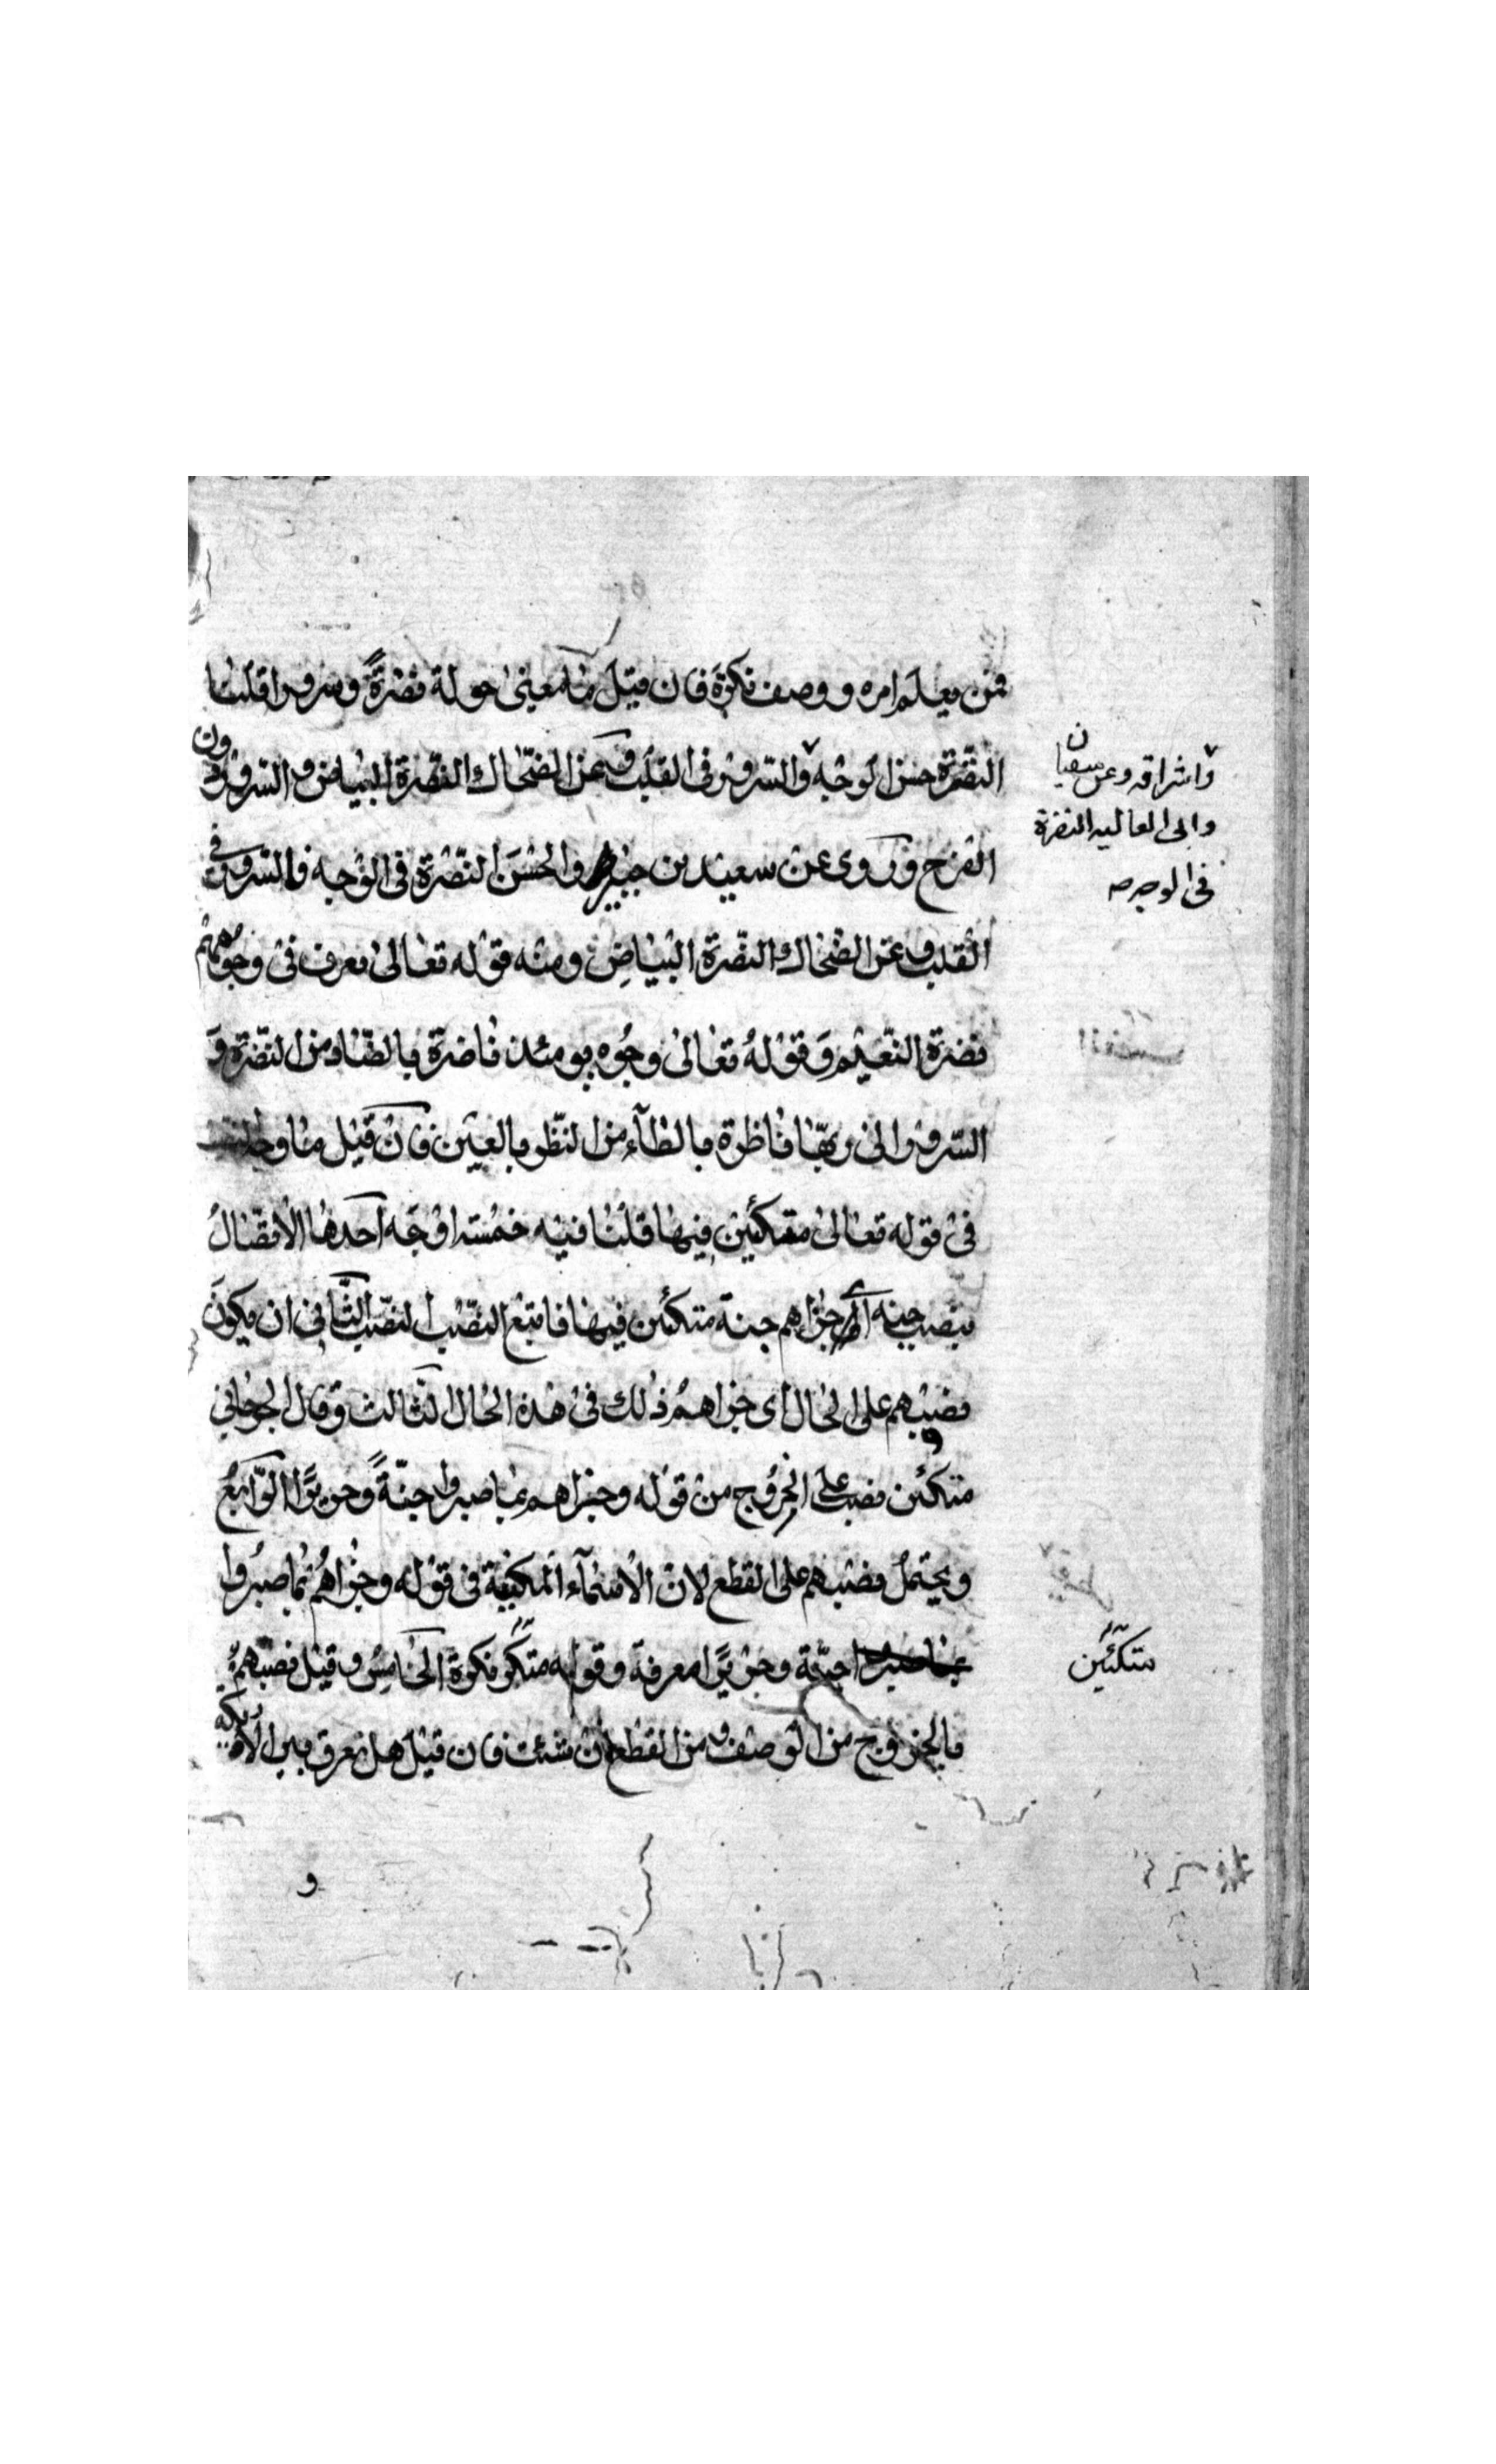 فمن يعلم امره ووصف نكرة فان قيل ما معنى قوله نضرةً وسرورا قلنا
النضرة حسن الوجه والسرور في القلب وعن الضحاك النضرة البياض والسرور
الفرح وروى عن سعيد بن جبير والحسن النضرة في الوجه والسرور في
القلب وعن الضحاك النضرة البياض ومنه قوله تعالى تعرف في وجوههم
نضرة النعيم وقوله تعالى وجوه يومئذ ناضرة بالضاد من النضرة و
السرور الى ربها ناظرة بالظآء من النظر بالعين فان قيل ما وجه
في قوله تعالى متكئين فيها قلنا فيه خمسة اوجه احدها الاتصال
بنصب جنة اي جزاهم جنة متكئين فيها فاتبع النصب النصب الثاني ان يكون
نصبهم على الحال اى جزاهم ذلك في هذه الحال الثالث وقال الجرجاني
متكئين نصب على الخروج من قوله وجزاهم بما صبروا جنةً وحريرًا الرابع
ويحتمل نصبهم على القطع لان الاسمآء المكيفة في قوله وجزاهم بما صبروا
جنة وحريرًا معرفة وقوله نكرة الخامس وقيل نصبهم
بالخروج من الوصف ومن القطع ان شئت فان قيل هل تعرف بين الاريكة
و
واشراقه وعن سفيان
وابى العاليه النضرة
في الوجه صح
متكئين